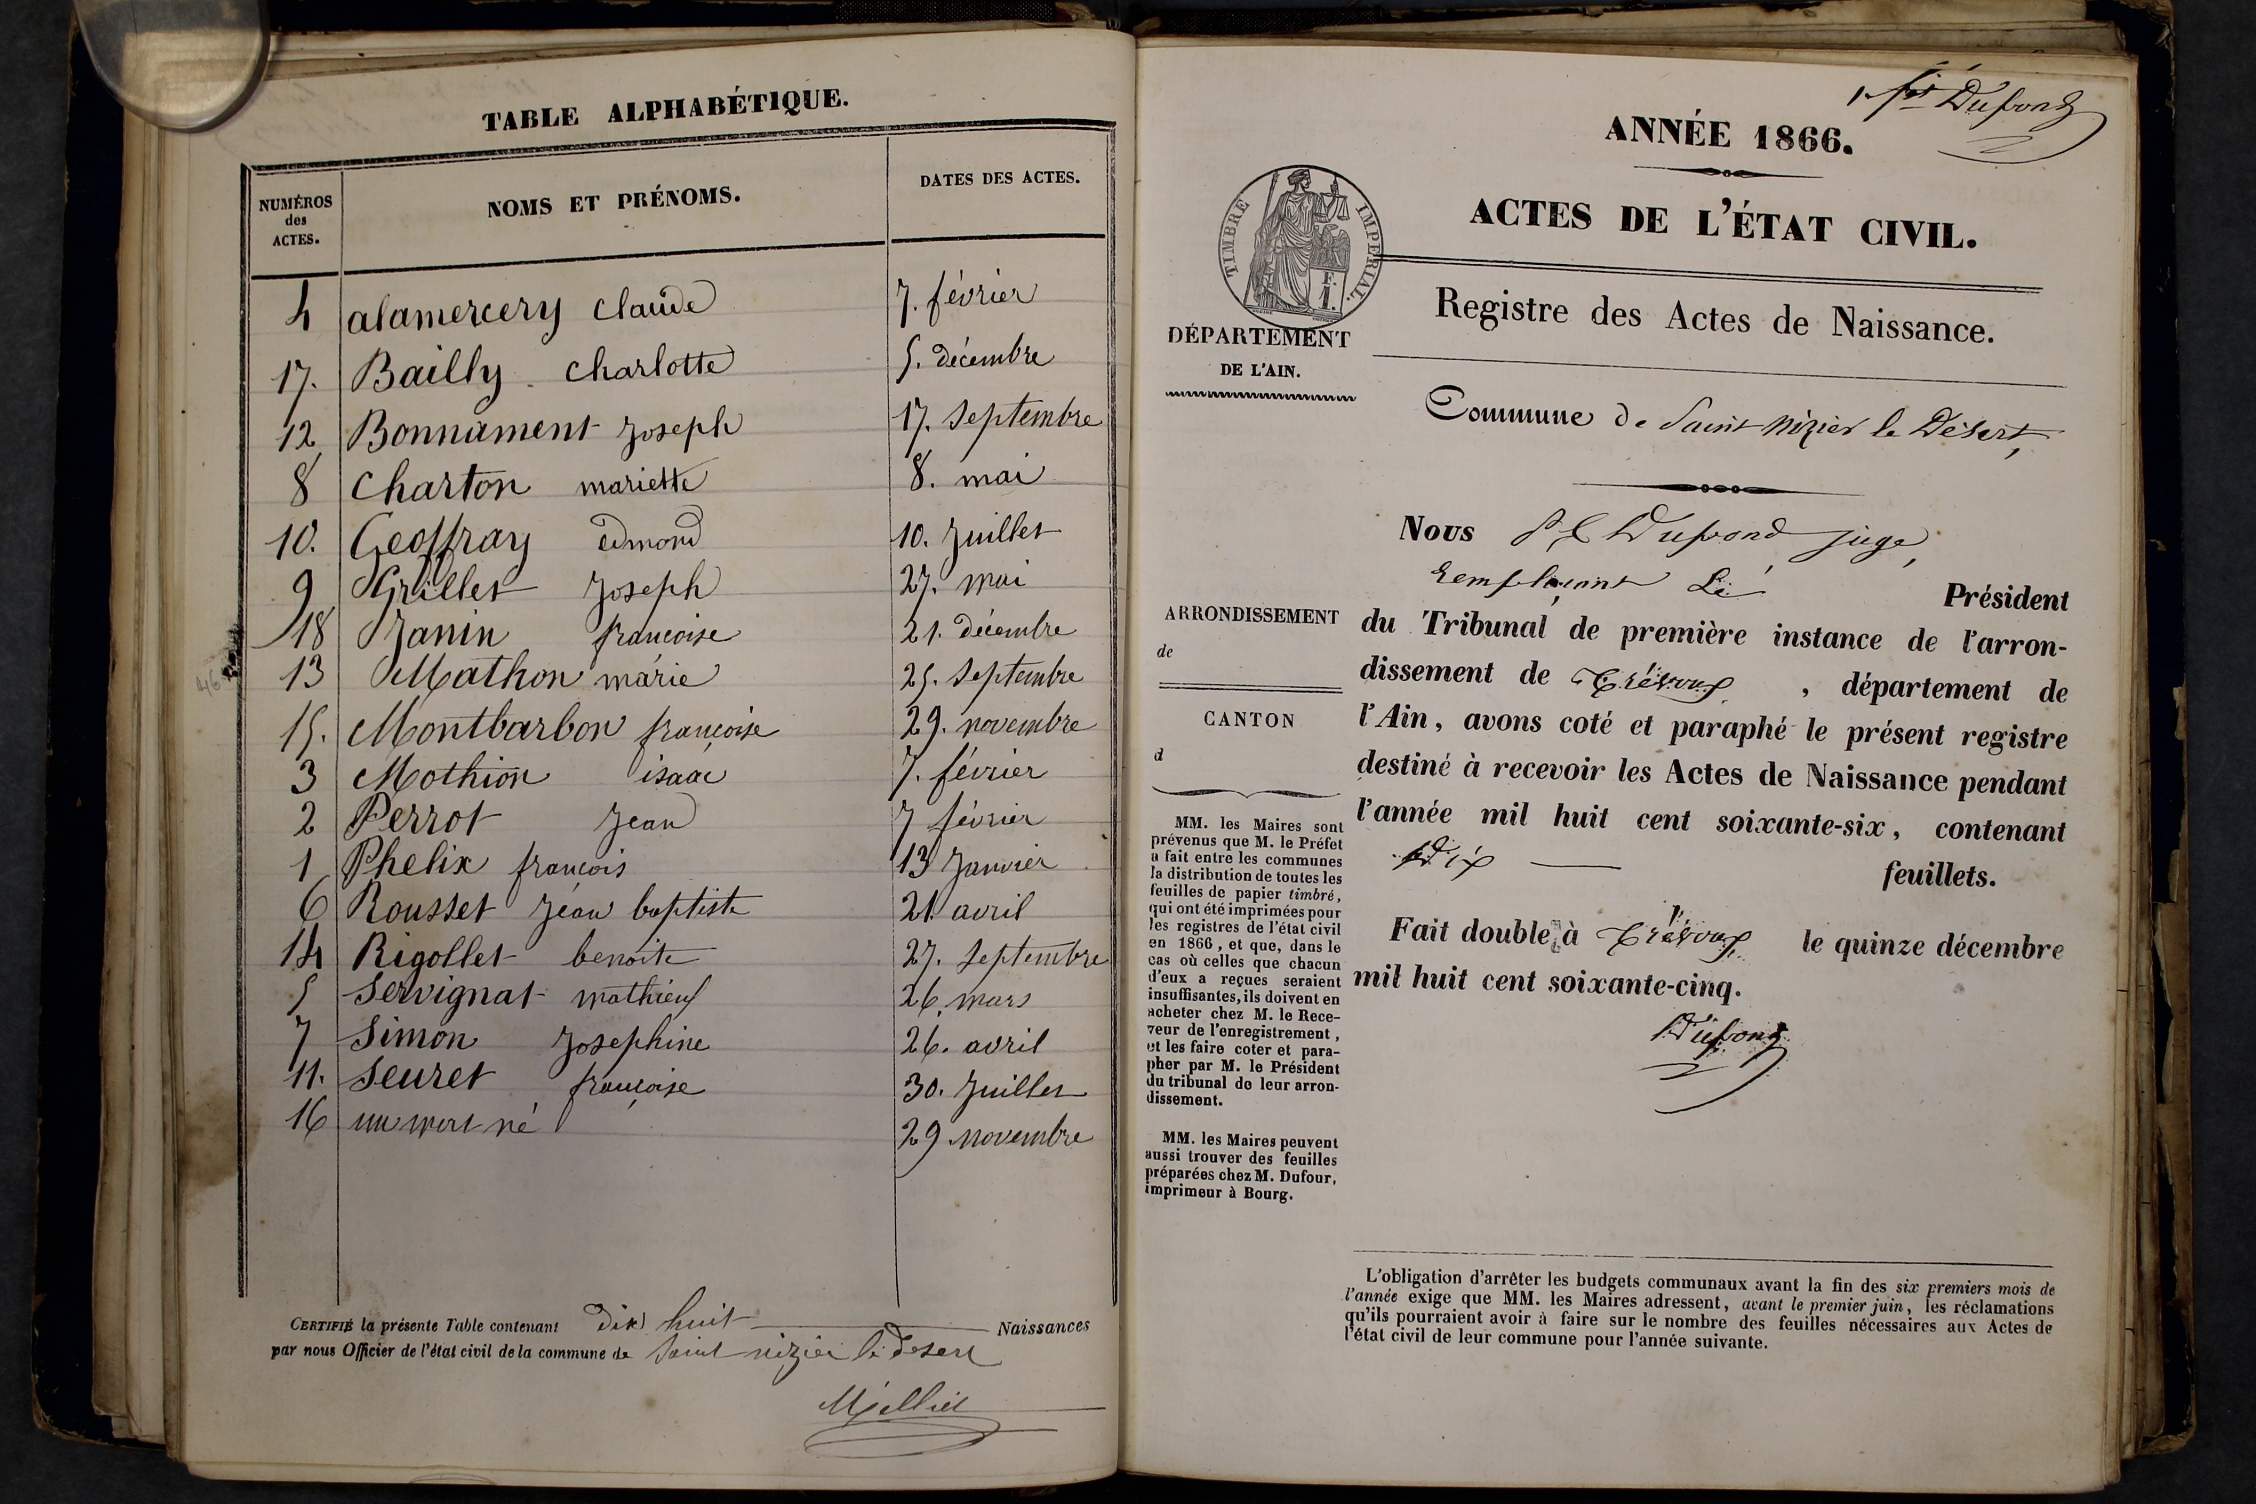 TABLE ALPHABÉTIQUE.
NUMÉROS des ACTES. NOMS ET PRÉNOMS. DATES DES ACTES.
4 alamercery claude 7. février
17. Bailly charlotte 5. décembre
12 Bonnament Joseph 17. septembre
8 charton mariette 8. mai
10. Geoffray édmond 10. Juillet
9 Grillet Joseph 27. mai
18 Janin francoise 21. décembre
13 Mathon marie 25. septembre
15. Montbarbon françoise 29. novembre
3 Mothion isaac 7. février
2 Perrot Jean 7 février
1 Phelix francois 13 Janvier
6 Rousset Jean baptiste 21 avril
14 Rigollet benoite 27. septembre
5 servignat mathieu 26. mars
7 Simon Josephine 26. avril
11. seuret françoise 30. Juillet
16 un mort né 29 novembre
CERTIFIÉ la présente Table contenant dix huit Naissances
par nous Officier de l'état civil de la commune de saint nizier le desert
1er Dupond
ANNÉE 1866.
ACTES DE L'ÉTAT CIVIL.
TIMBRE IMPERIAL.
Registre des Actes de Naissance.
DÉPARTEMENT
DE L'AIN.
Commune de Saint Nizier le Désert,
Nous Dupond juge,
remplaçant Le Président
du Tribunal de première instance de l'arron-
dissement de Trévoux, département de
l'Ain, avons coté et paraphé le présent registre
destiné à recevoir les Actes de Naissance pendant
l'année mil huit cent soixante-six, contenant
dix feuillets.
Fait double à Trévoux le quinze décembre
mil huit cent soixante-cinq.
Dupond
ARRONDISSEMENT
de
CANTON
d
MM. les Maires sont
prévenus que M. le Préfet
a fait entre les communes
la distribution de toutes les
feuilles de papier timbré,
qui ont été imprimées pour
les registres de l'état civil
en 1866, et que, dans le
cas où celles que chacun
d'eux a reçues seraient
insuffisantes, ils doivent en
acheter chez M. le Rece-
veur de l'enregistrement,
et les faire coter et para-
pher par M. le Président
du tribunal de leur arron-
dissement.
MM. les Maires peuvent
aussi trouver des feuilles
préparées chez M. Dufour,
imprimeur à Bourg.
L'obligation d'arrêter les budgets communaux avant la fin des six premiers mois de
l'année exige que MM. les Maires adressent, avant le premier juin, les réclamations
qu'ils pourraient avoir à faire sur le nombre des feuilles nécessaires aux Actes de
l'état civil de leur commune pour l'année suivante.